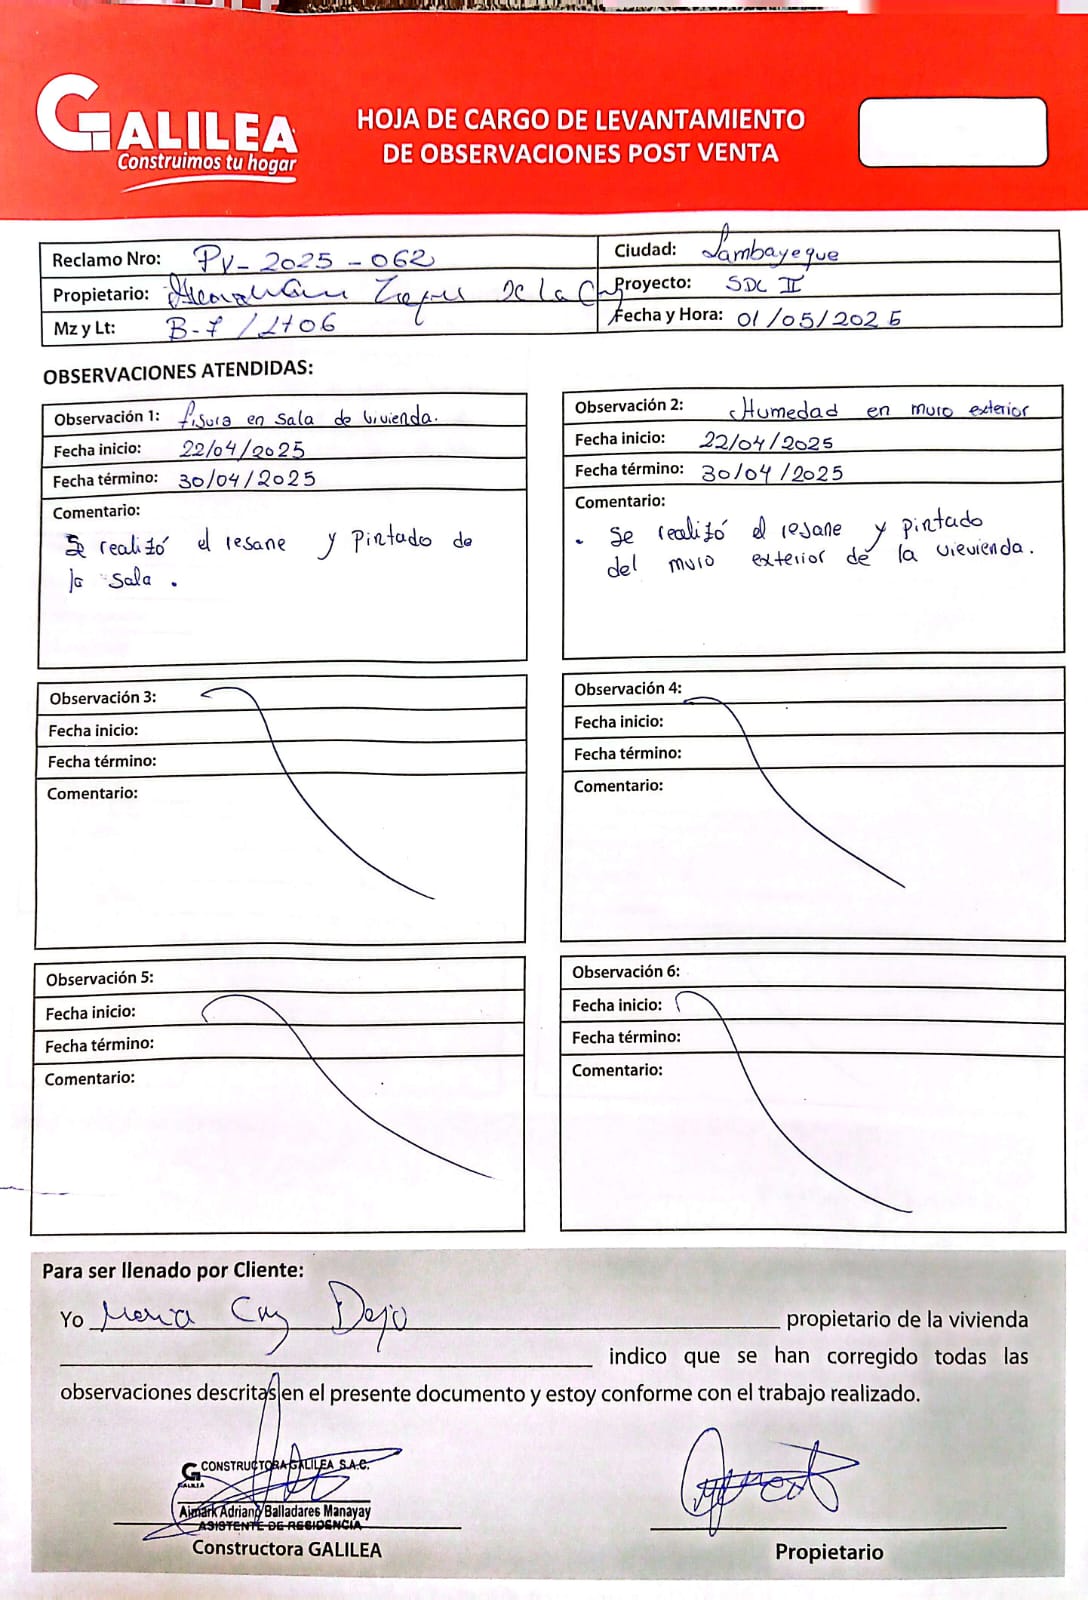 GALILEA
Construimos tu hogar
HOJA DE CARGO DE LEVANTAMIENTO
DE OBSERVACIONES POST VENTA
Reclamo Nro: PV-2025-062
Ciudad: Lambayeque
Propietario: De la C
Proyecto: SDC II
Mz y Lt: B-7 / Lt 06
Fecha y Hora: 01/05/2025
OBSERVACIONES ATENDIDAS:
Observación 1: fisura en sala de vivienda.
Fecha inicio: 22/04/2025
Fecha término: 30/04/2025
Comentario:
Se realizó el resane y pintado de
la sala.
Observación 2: Humedad en muro exterior
Fecha inicio: 22/04/2025
Fecha término: 30/04/2025
Comentario:
. Se realizó el resane y pintado
del muro exterior de la vievienda.
Observación 3:
Fecha inicio:
Fecha término:
Comentario:
Observación 4:
Fecha inicio:
Fecha término:
Comentario:
Observación 5:
Fecha inicio:
Fecha término:
Comentario:
Observación 6:
Fecha inicio:
Fecha término:
Comentario:
Para ser llenado por Cliente:
Yo Maria Cruz Dejo propietario de la vivienda
indico que se han corregido todas las
observaciones descritas en el presente documento y estoy conforme con el trabajo realizado.
G CONSTRUCTORA GALILEA S.A.C.
GALILEA
Aimark Adriano Balladares Manayay
ASISTENTE DE RESIDENCIA
Constructora GALILEA
Propietario